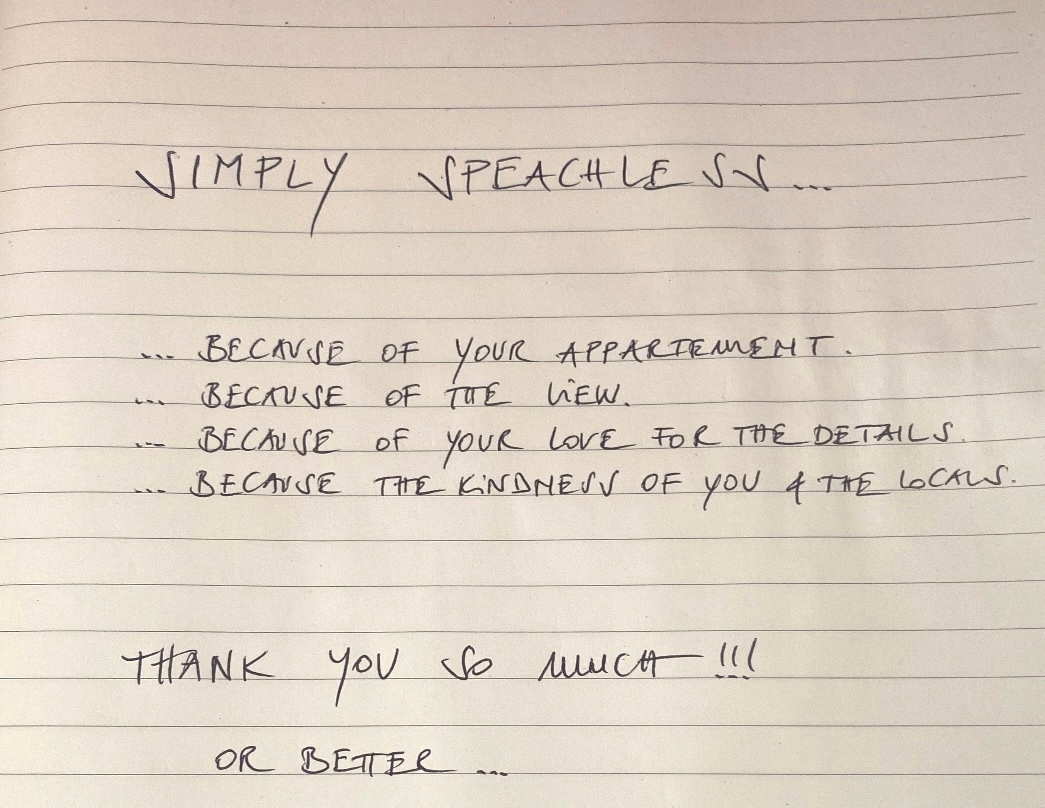 SIMPLY SPEACHLESS...
... BECAUSE OF YOUR APPARTEMENT.
... BECAUSE OF THE VIEW.
... BECAUSE OF YOUR LOVE FOR THE DETAILS.
... BECAUSE THE KINDNESS OF YOU & THE LOCALS.
THANK YOU SO MUCH !!!
OR BETTER ...